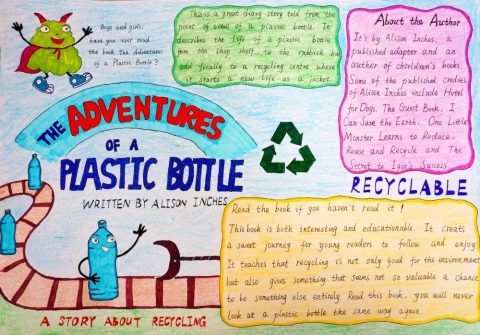 Boys and girls,
have you ever read
the book The Adventures
of a Plastic Bottle?
This is a great diary story told from the
point of view of a plastic bottle. It
describes the life of a plastic bottle
from the shop shelf, to the rubbish bin
and finally to a recycling centre where
it starts a new life as a jacket.
About the Author
It's by Alison Inches, a
published adapter and an
author of children's books.
Some of the published credits
of Alison Inches include Hotel
for Dogs, The Guest Book, I
Can Save the Earth, One Little
Monster Learns to Reduce,
Reuse and Recycle and The
Secret to Igor's Success.
THE ADVENTURES
OF A
PLASTIC BOTTLE
WRITTEN BY ALISON INCHES
RECYCLABLE
Read the book if you haven't read it!
This book is both interesting and educationable. It creats
a sweet journey for young readers to follow and enjoy.
It teaches that recycling is not only good for the environment
but also gives something that seems not so valuable a chance
to be something else entirely. Read this book, you will never
look at a plastic bottle the same way again.
A STORY ABOUT RECYCLING